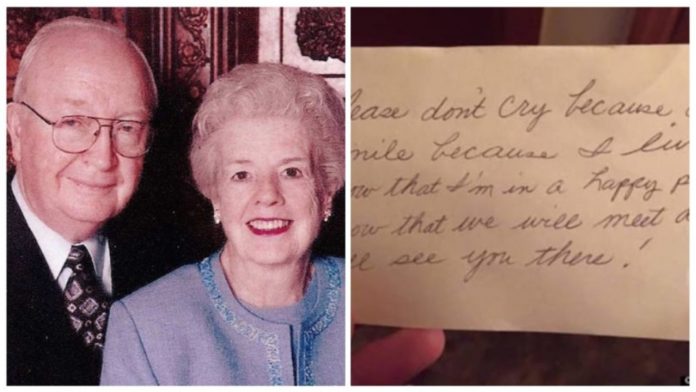 ease don't cry because
mile because I liv
ow that I'm in a happy p
ow that we will meet a
see you there!